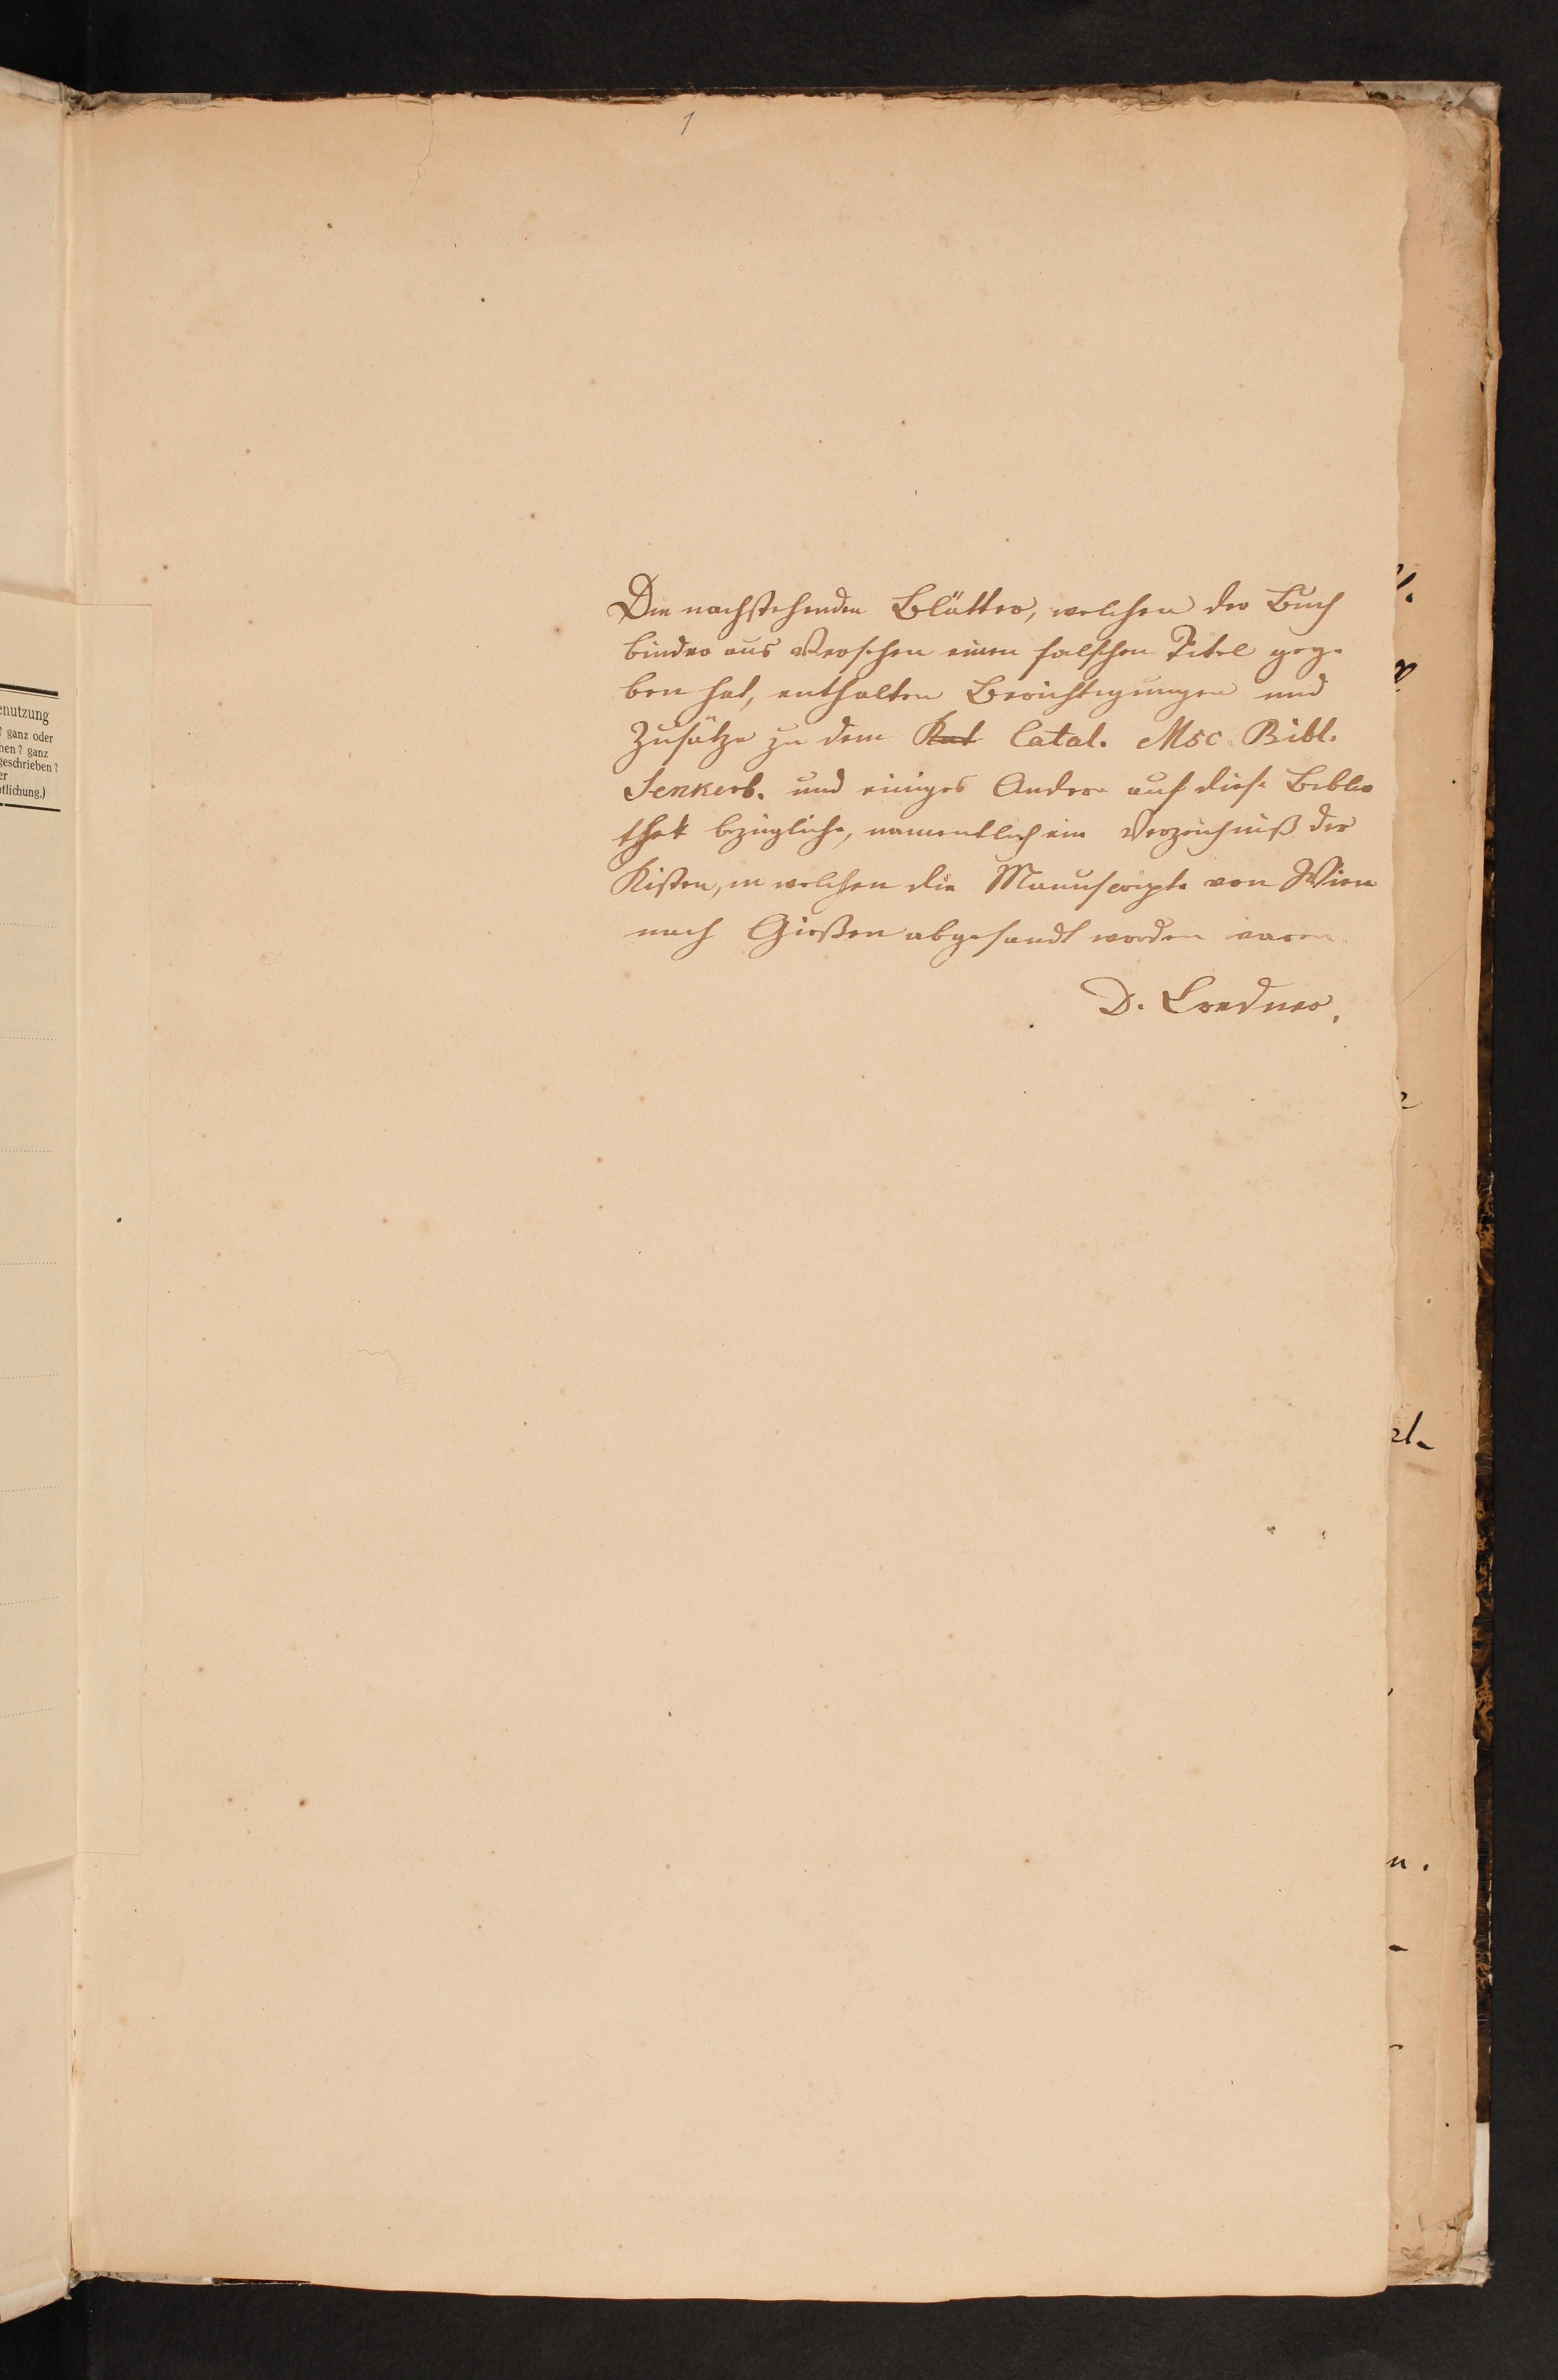 1
Die nachstehenden Blätter, welchen der Buch
binder aus Versehen einen falschen Titel gege
ben hat, enthalten Berichtigungen und
Zusätze zu dem Kat Catal. Msc Bibl.
Senkenb. und einiges Andere auf diese Biblio
thek bezügliche, namentlich ein Verzeichniß der
Kisten, in welchen die Manuscripte von Wien
nach Gießen abgesandt worden waren.
D. Credner.
enutzung
ganz oder
hen? ganz
geschrieben?
er
tlichung.)